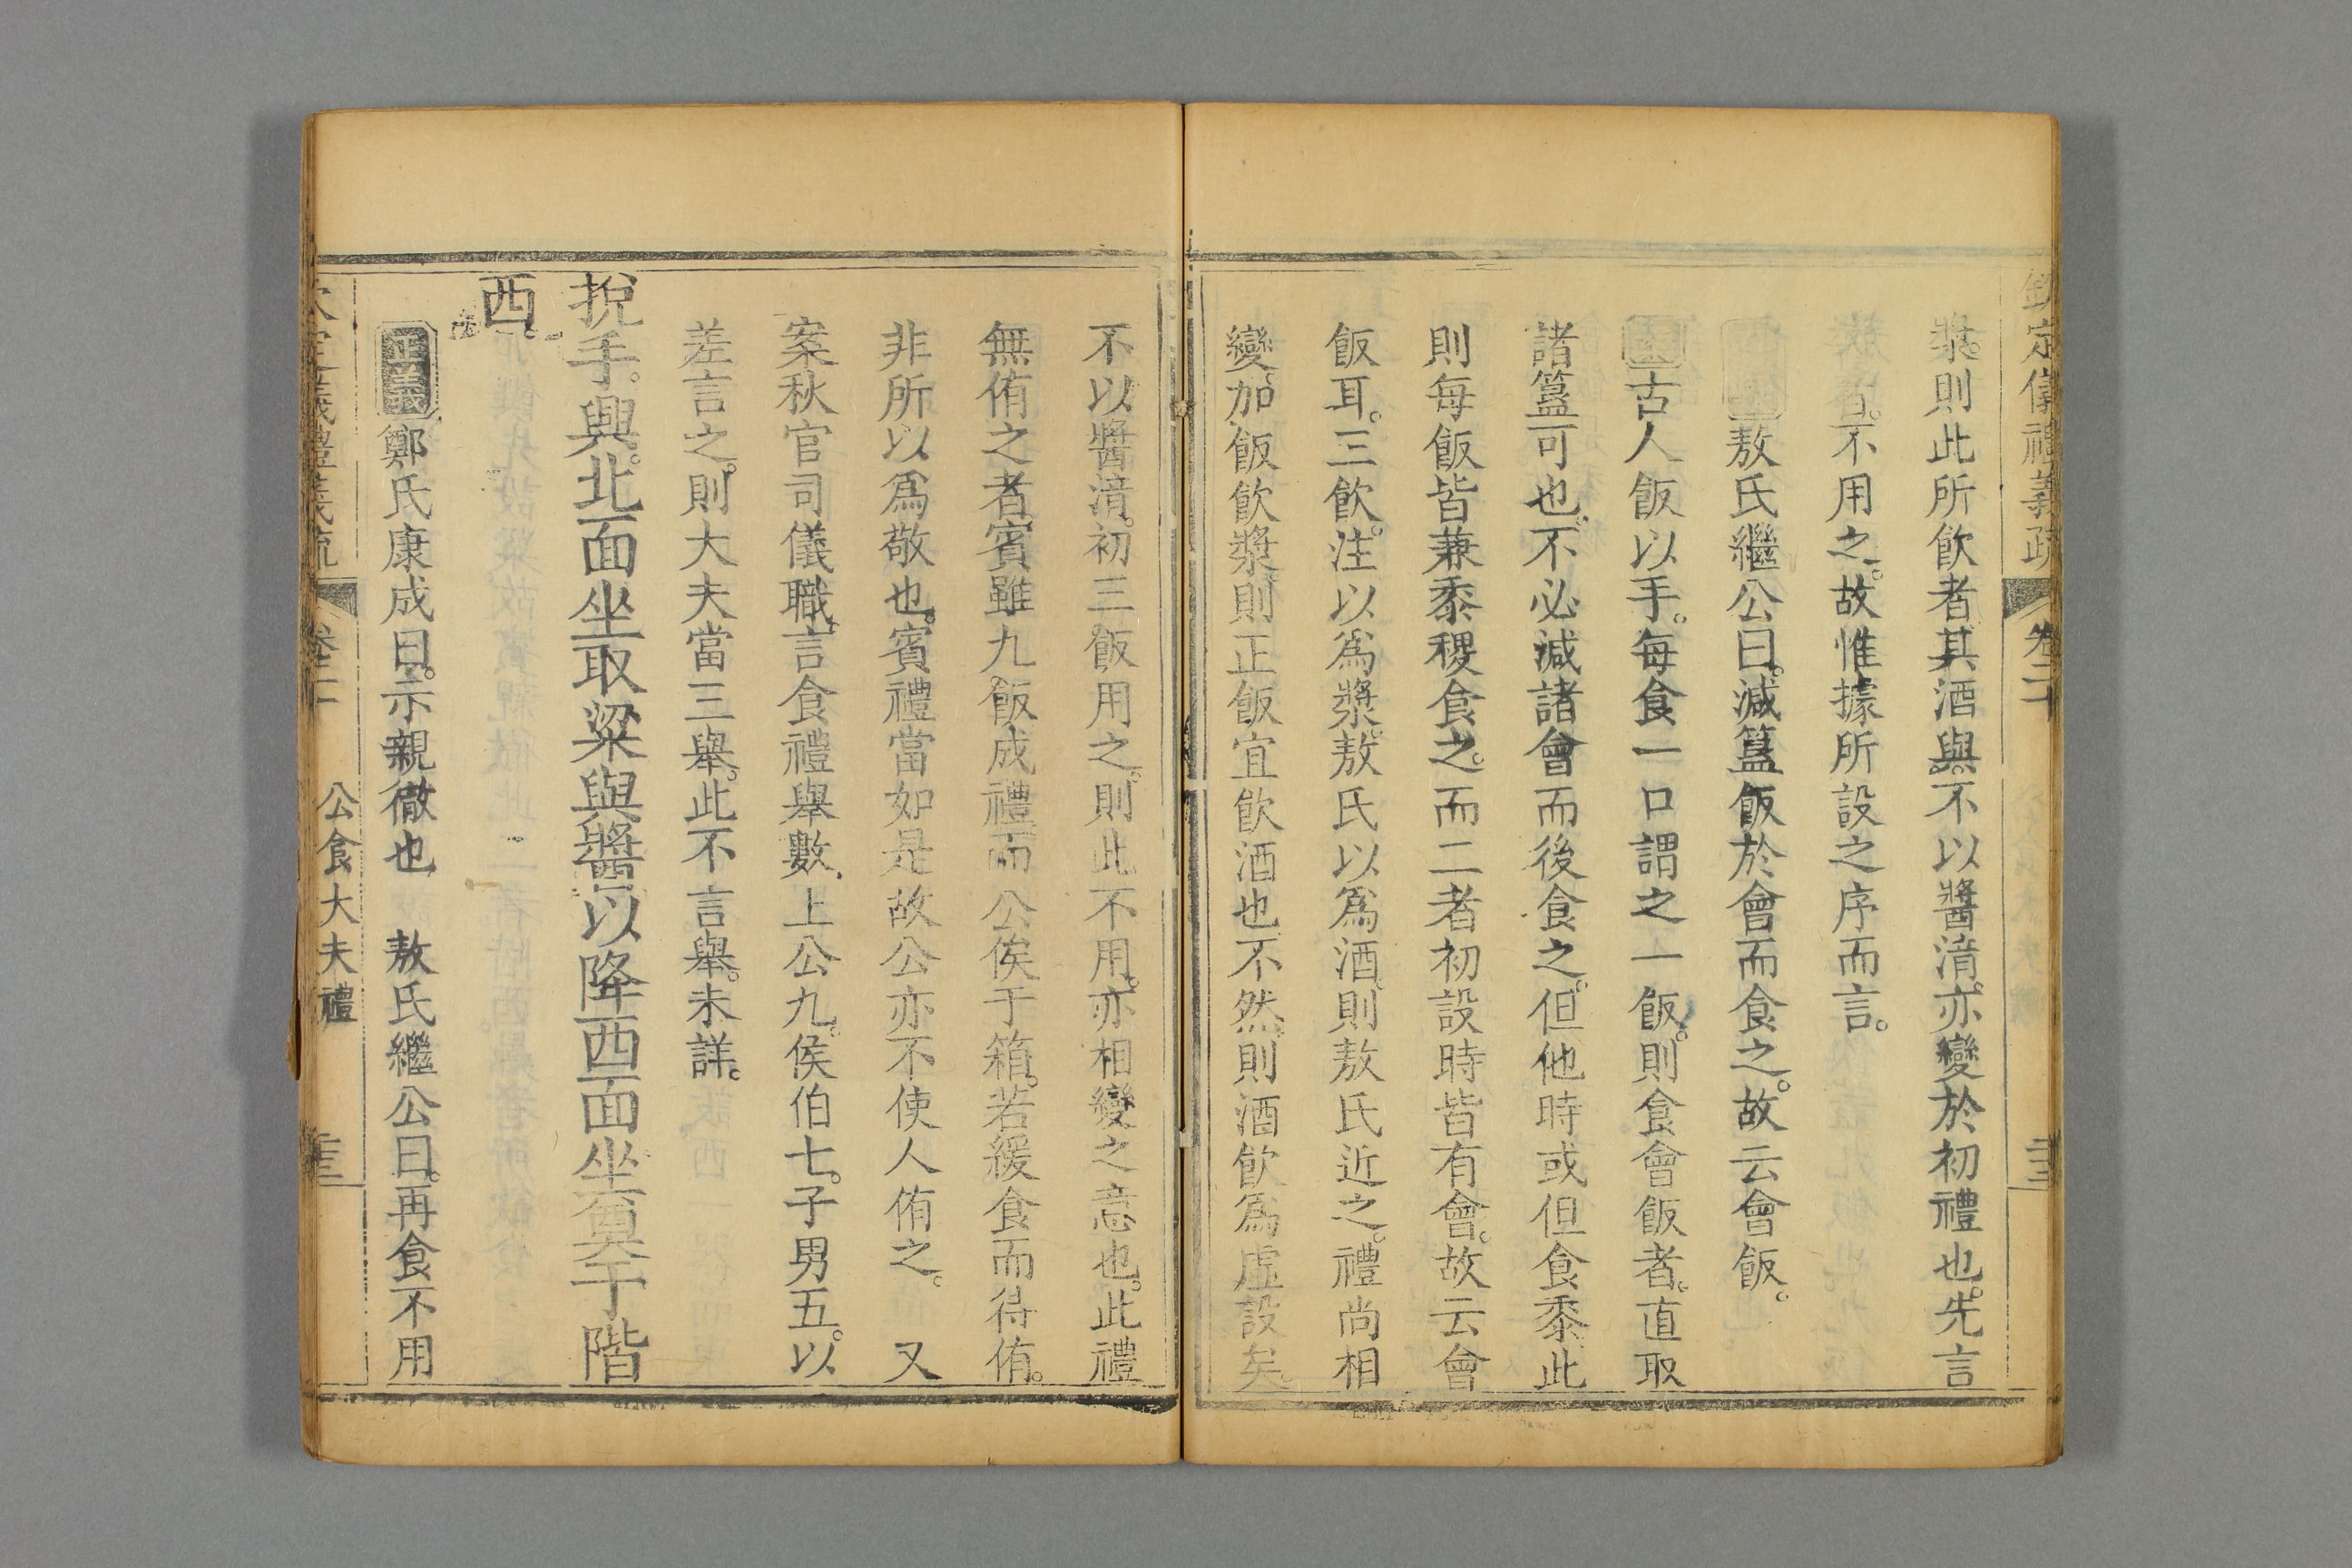 欽定儀禮義疏 卷二十
漿則此所飲者其酒與不以醬湆亦變於初禮也先言
漿者不用之故惟據所設之序而言
敖氏繼公曰減簋飯於會而食之故云會飯
案古人飯以手每食一口謂之一飯則食會飯者直取
諸簋可也不必減諸會而後食之但他時或但食黍此
則每飯皆兼黍稷食之而二者初設時皆有會故云會
飯耳三飲注以爲漿敖氏以爲酒則敖氏近之禮尚相
變加飯飲漿則正飯宜飲酒也不然則酒飲爲虛設矣
不以醬湆初三飯用之則此不用亦相變之意也此禮
無侑之者賓雖九飯成禮而公俟于箱若緩食而待侑
非所以爲敬也賓禮當如是故公亦不使人侑之 又
案秋官司儀職言食禮舉數上公九侯伯七子男五以
差言之則大夫當三舉此不言舉未詳
挩手興北面坐取粱與醬以降西面坐奠于階
西
正義鄭氏康成曰示親徹也 敖氏繼公曰再食不用
欽定儀禮義疏 卷二十 公食大夫禮